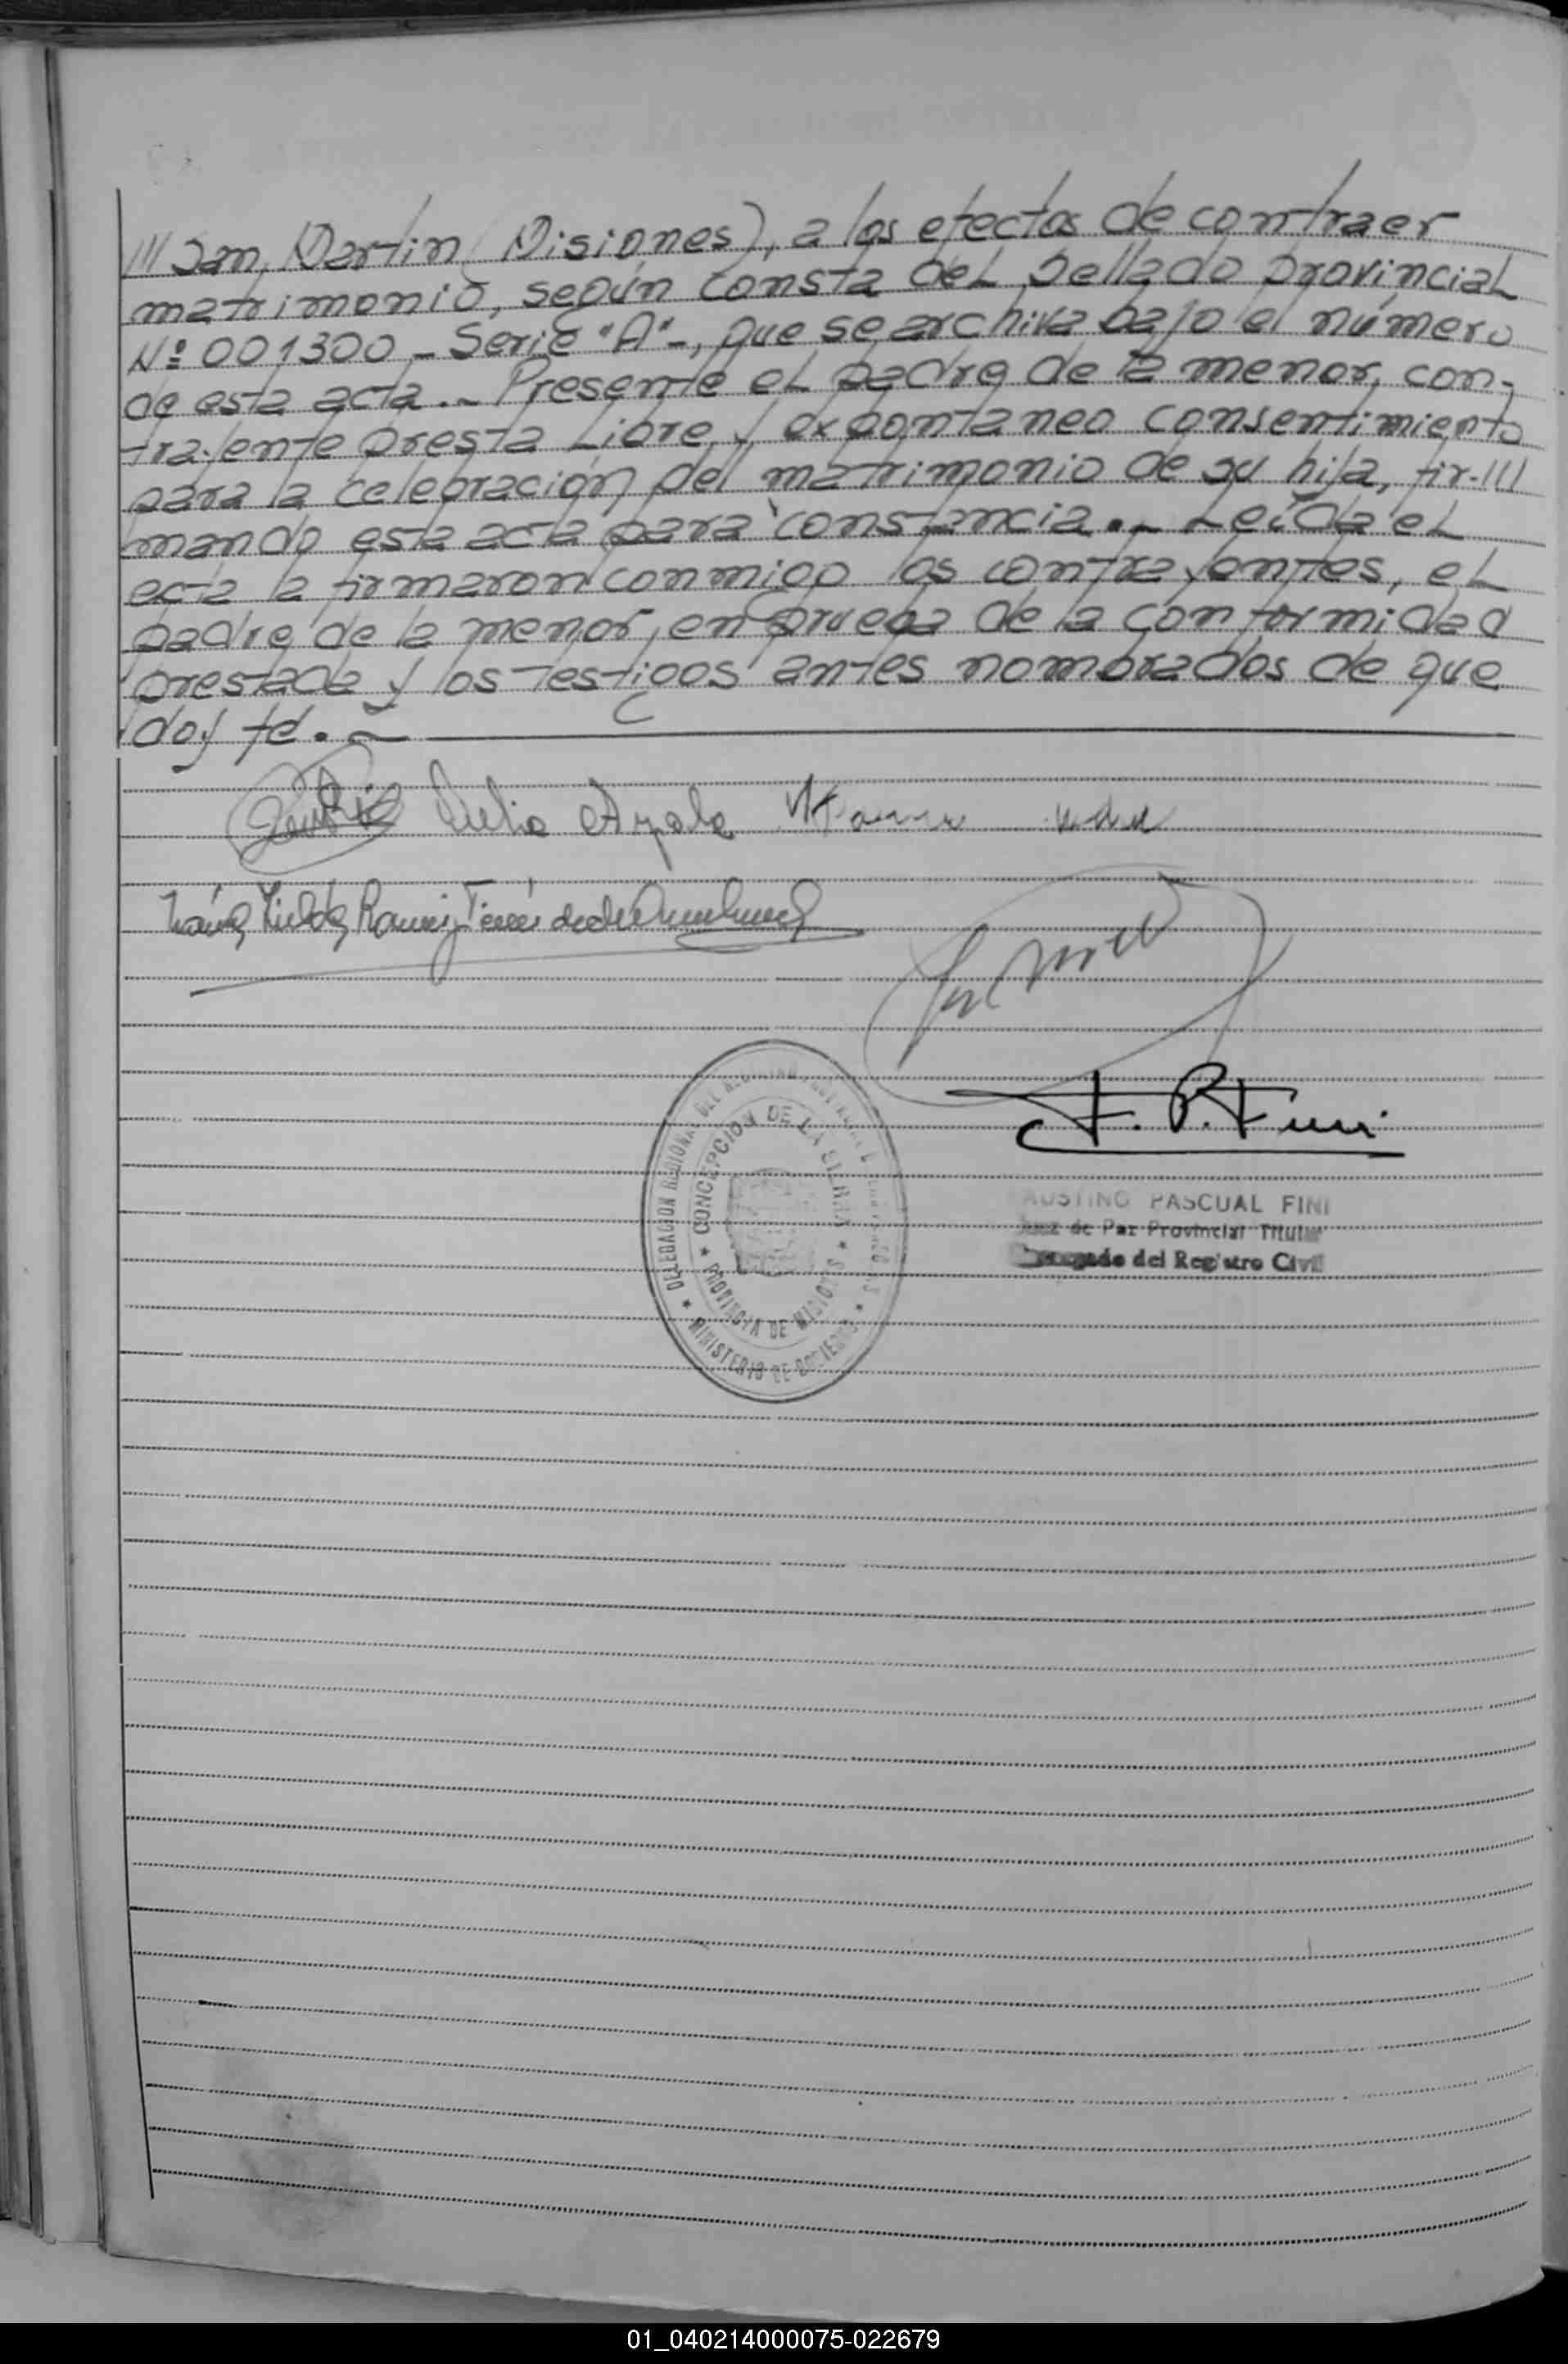 /// San Martin (Misiones), a los efectos de contraer
matrimonio, según consta del sellado provincial
Nº 001300 - Serie "A"-, que se archiva bajo el número
de esta acta.- Presente el padre de la menor, con-
trayente presta libre y expontaneo consentimiento
para la celebración del matrimonio de su hija, fir-///
mando esta acta para constancia.- Leída el
acta la firmaron conmigo los contrayentes, el
padre de la menor, en prueba de la conformidad
prestada y los testigos antes nombrados de que
doy fé.-
Delia Ayala
Ramirez
F. P. Fini
AUSTINO PASCUAL FINI
Juez de Paz Provincial Titular
Encargado del Registro Civil
DELEGACION REGIONAL DEL REGISTRO PROVINCIAL
CONCEPCION DE LA SIERRA
PROVINCIA DE MISIONES
MINISTERIO DE GOBIERNO
01_040214000075-022679